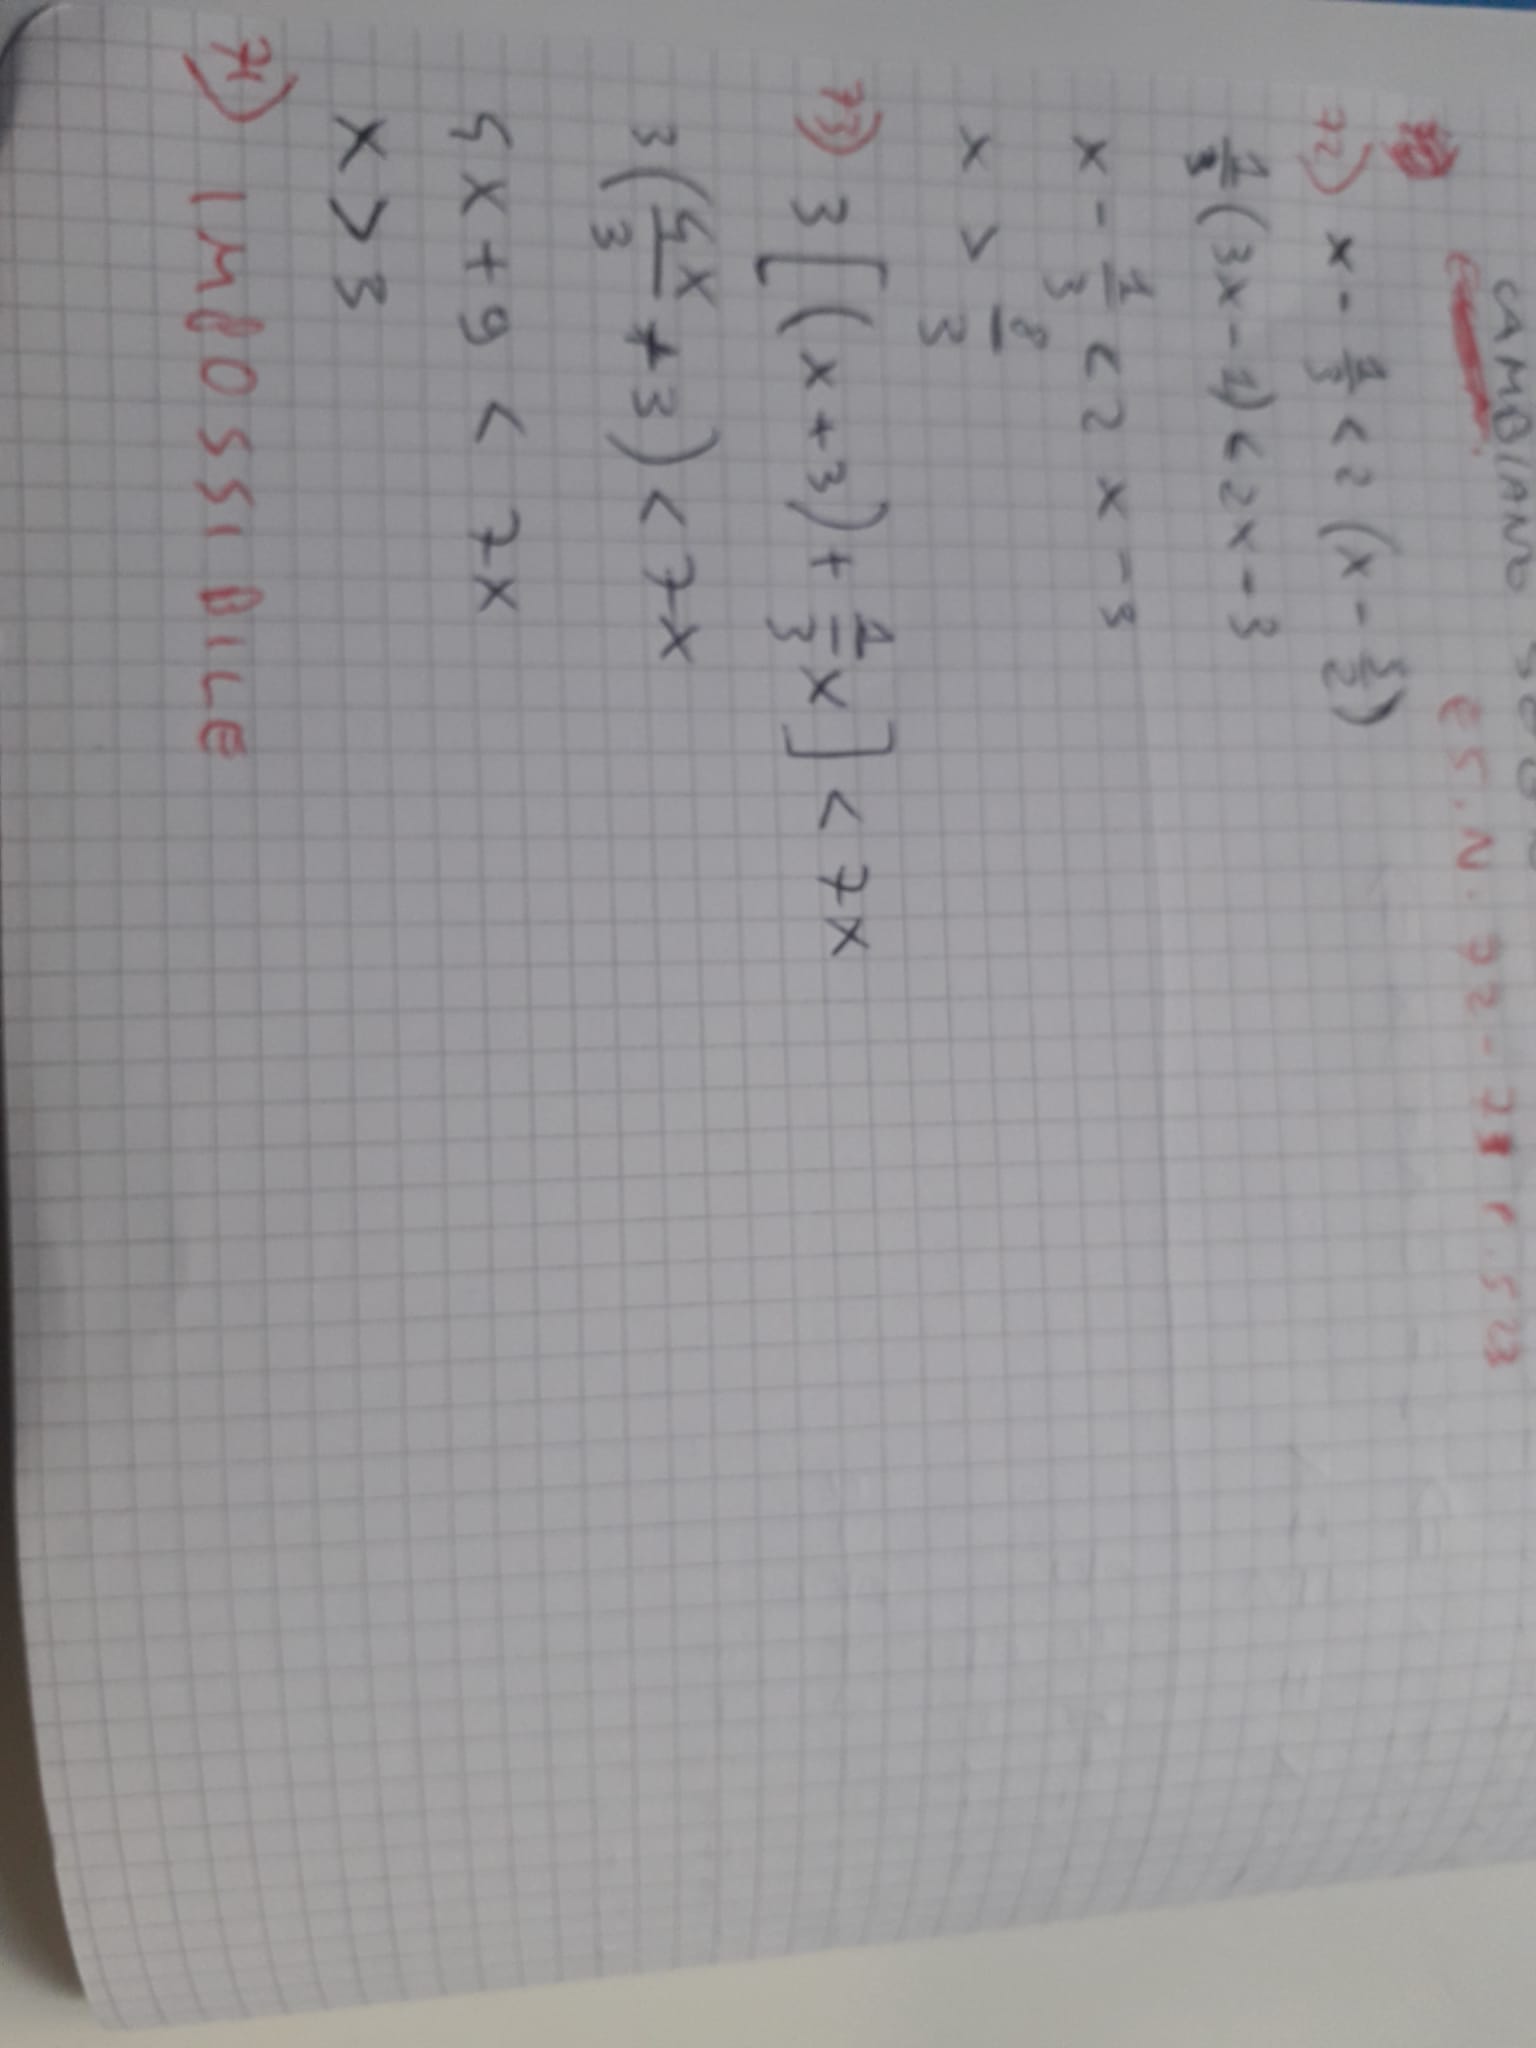 CAMBIANO
ES. N. 72-73 P. 523
72) x - 1/3 < 2 (x - 3/2)
1/3 (3x - 1) < 2x - 3
x - 1/3 < 2x - 3
x > 8/3
73) 3 [(x + 3) + 1/3 x] < 7x
3 (4x/3 + 3) < 7x
4x + 9 < 7x
x > 3
74) IMPOSSIBILE